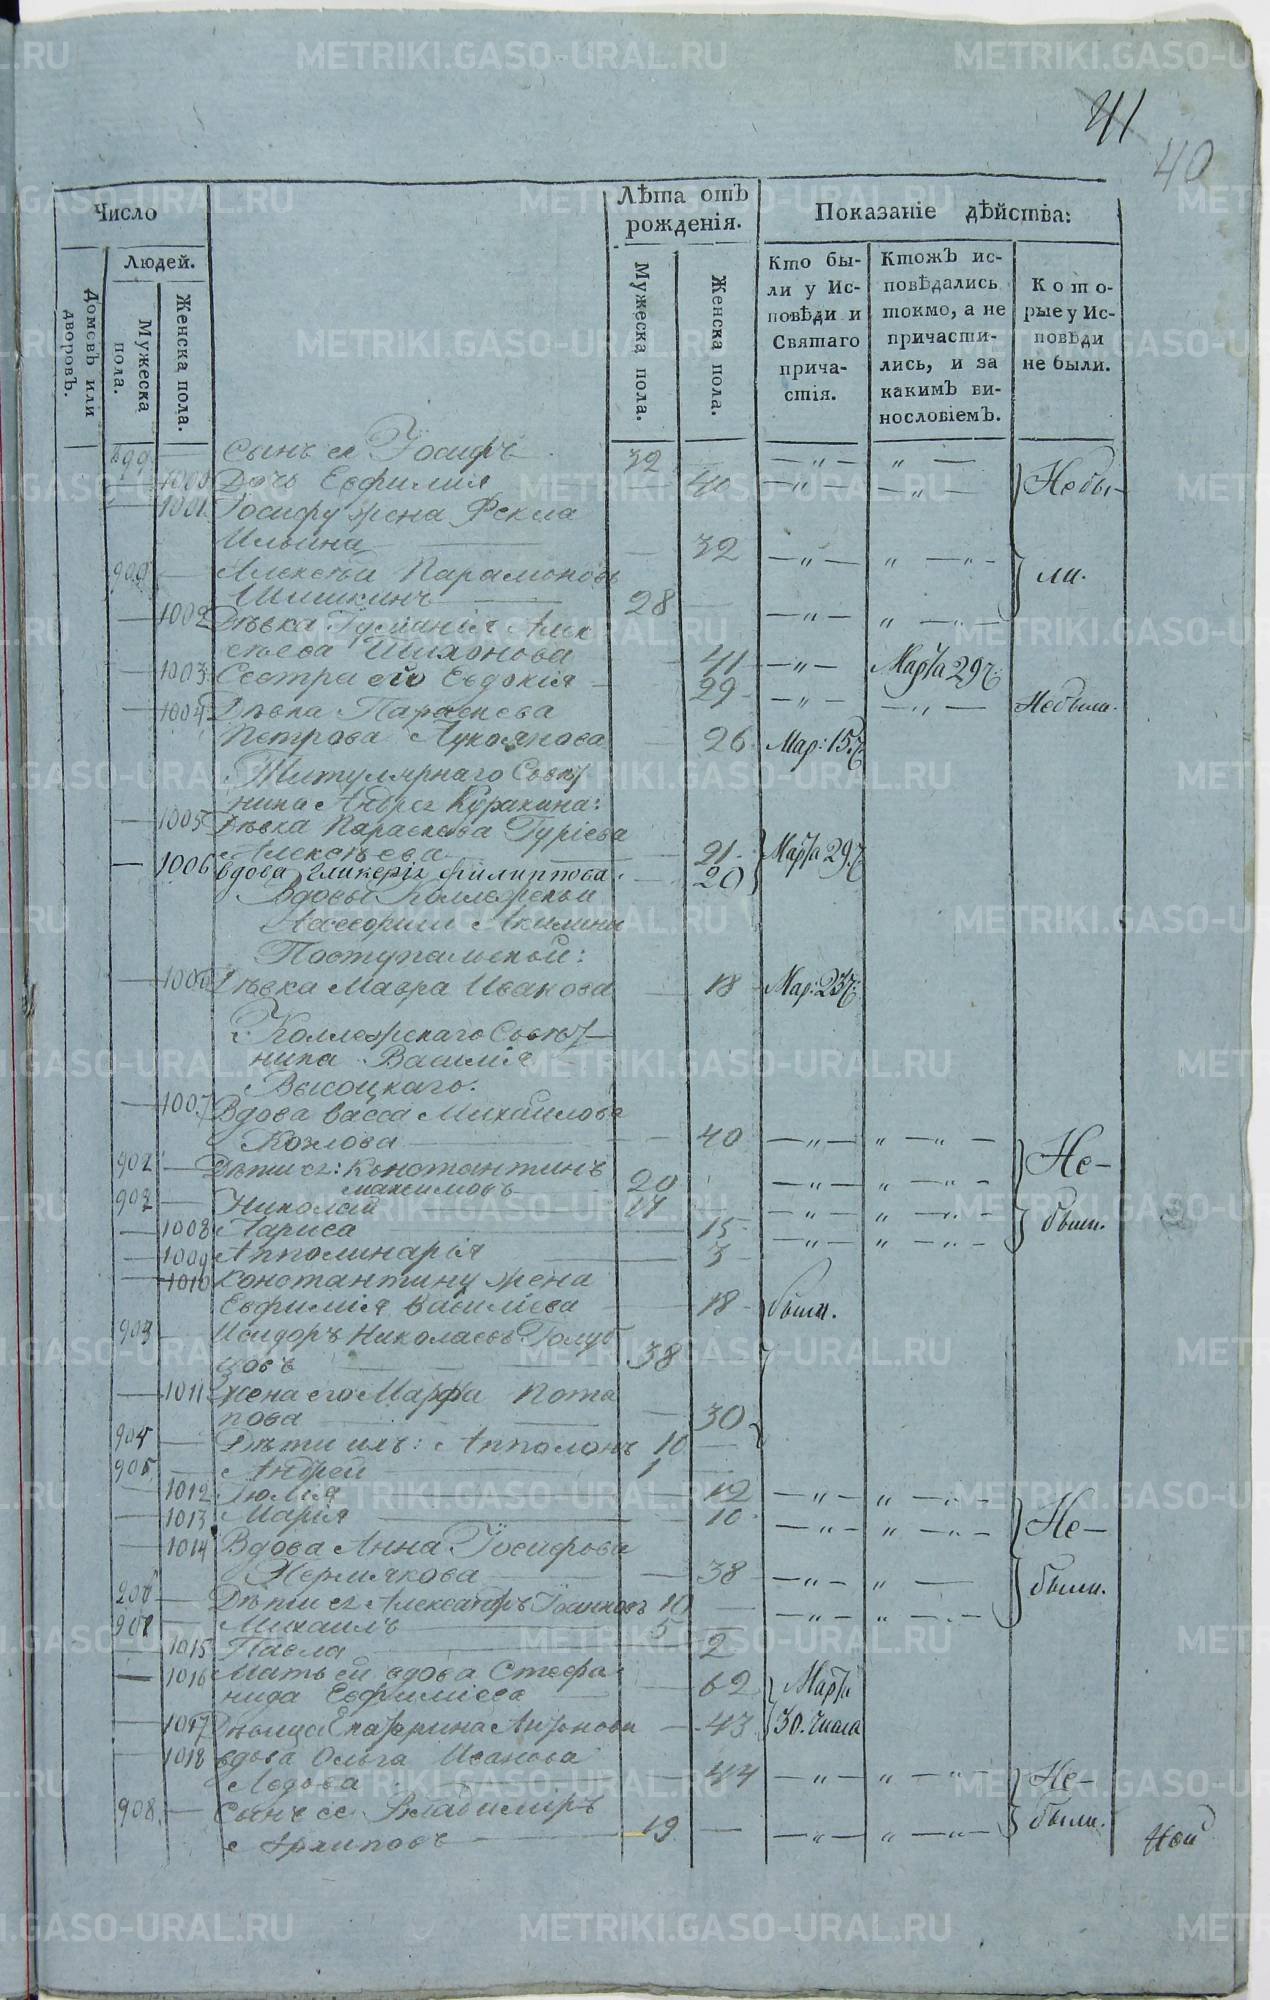 41
40
Число
Лѣта отъ рожденія.
Показаніе дѣйствія:
Людей.
Домовъ или дворовъ.
Мужеска пола.
Женска пола.
Мужеска пола.
Женска пола.
Кто были у Исповѣди и Святаго причастія.
Ктожъ исповѣдались токмо, а не причастились, и за какимъ винословіемъ.
Которые у Исповѣди не были.
899 — Сынъ ея Іосифъ 32 — „ — „ —
— 1000 Дочь Евфимія — 40 — „ — — „ — Небы-
— 1001 Іосифу жена Фекла
Ильина — 32 — „ — „ — „ -
900 — Алексѣй Парамоновъ ли.
Шишкинъ 28 — — „ — „ — „ —
— 1002 Дѣвка Алек
сѣева Тихонова — 41 — „ — Марта 29 ч:
— 1003 Сестра ей Евдокія — 29 — „ — — „ — Небыли.
— 1004 Дѣвка Параскева
Петрова — 26 Мар: 15 ч
Титулярнаго Совѣт
ника Андрея Куракина:
— 1005 Дѣвка Параскева Гуріева
Алексѣева — 21 Марта 29 ч
— 1006 вдова Гликерія Филиппова — 20
Вдовы Коллежской
Ассесорши Акилины
Поступальской:
— 1006 Дѣвка Мавра Иванова — 18 Мар: 23 ч:
Коллежскаго Совѣт-
ника Василія
Высоцкаго.
— 1007 Вдова Васса Михайлова
Козлова — 40 — „ — „ — „ —
902 — Дѣти ея: Константинъ Не-
Максимовъ 20 — „ — „ — „ -
902 — Николай 17 — „ — „ — „ - были.
— 1008 Лариса — 15 — „ — „ — „ -
— 1009 Апполинарія — 3
— 1010 Константину жена
Евфимія Василіева — 18 были.
903 — Исидоръ Николаевъ Голуб
цовъ 38 —
— 1011 жена его Марфа Пота
пова — 30
904 — Дѣти ихъ: Апполонъ 10 —
905 — Андрей 1 —
— 1012 Юлія — 12 — „ — „ — „ -
— 1013 Марія — 10 — „ — „ — „ — Не-
— 1014 Вдова Анна Іосифова
— 38 — „ — „ — были.
206 — Дѣти ея Александръ 10 — — „ — „ — „ -
907 — Михаилъ 5 —
— 1015 Павла — 2
— 1016 Мать ей вдова Стефа
нида Евфимієва — 62 Марта
— 1017 Дѣвица Екатерина Антонова — 43 30. Числа
— 1018 вдова Ольга Иванова
Ледова — 44 — „ — „ — „ — Не-
908. — Сынъ ее Владиміръ были.
Архиповъ 19 — — „ — „ — „ —
Ной